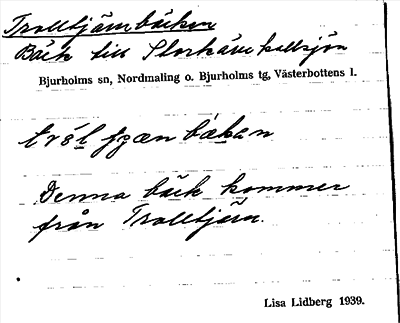 Trolltjärnbäcken
Bäck till Storkäringkallsjön
Bjurholms sn, Nordmaling o. Bjurholms tg, Västerbottens l.
bäkan
Denna bäck kommer
från Trolltjärn.
Lisa Lidberg 1939.